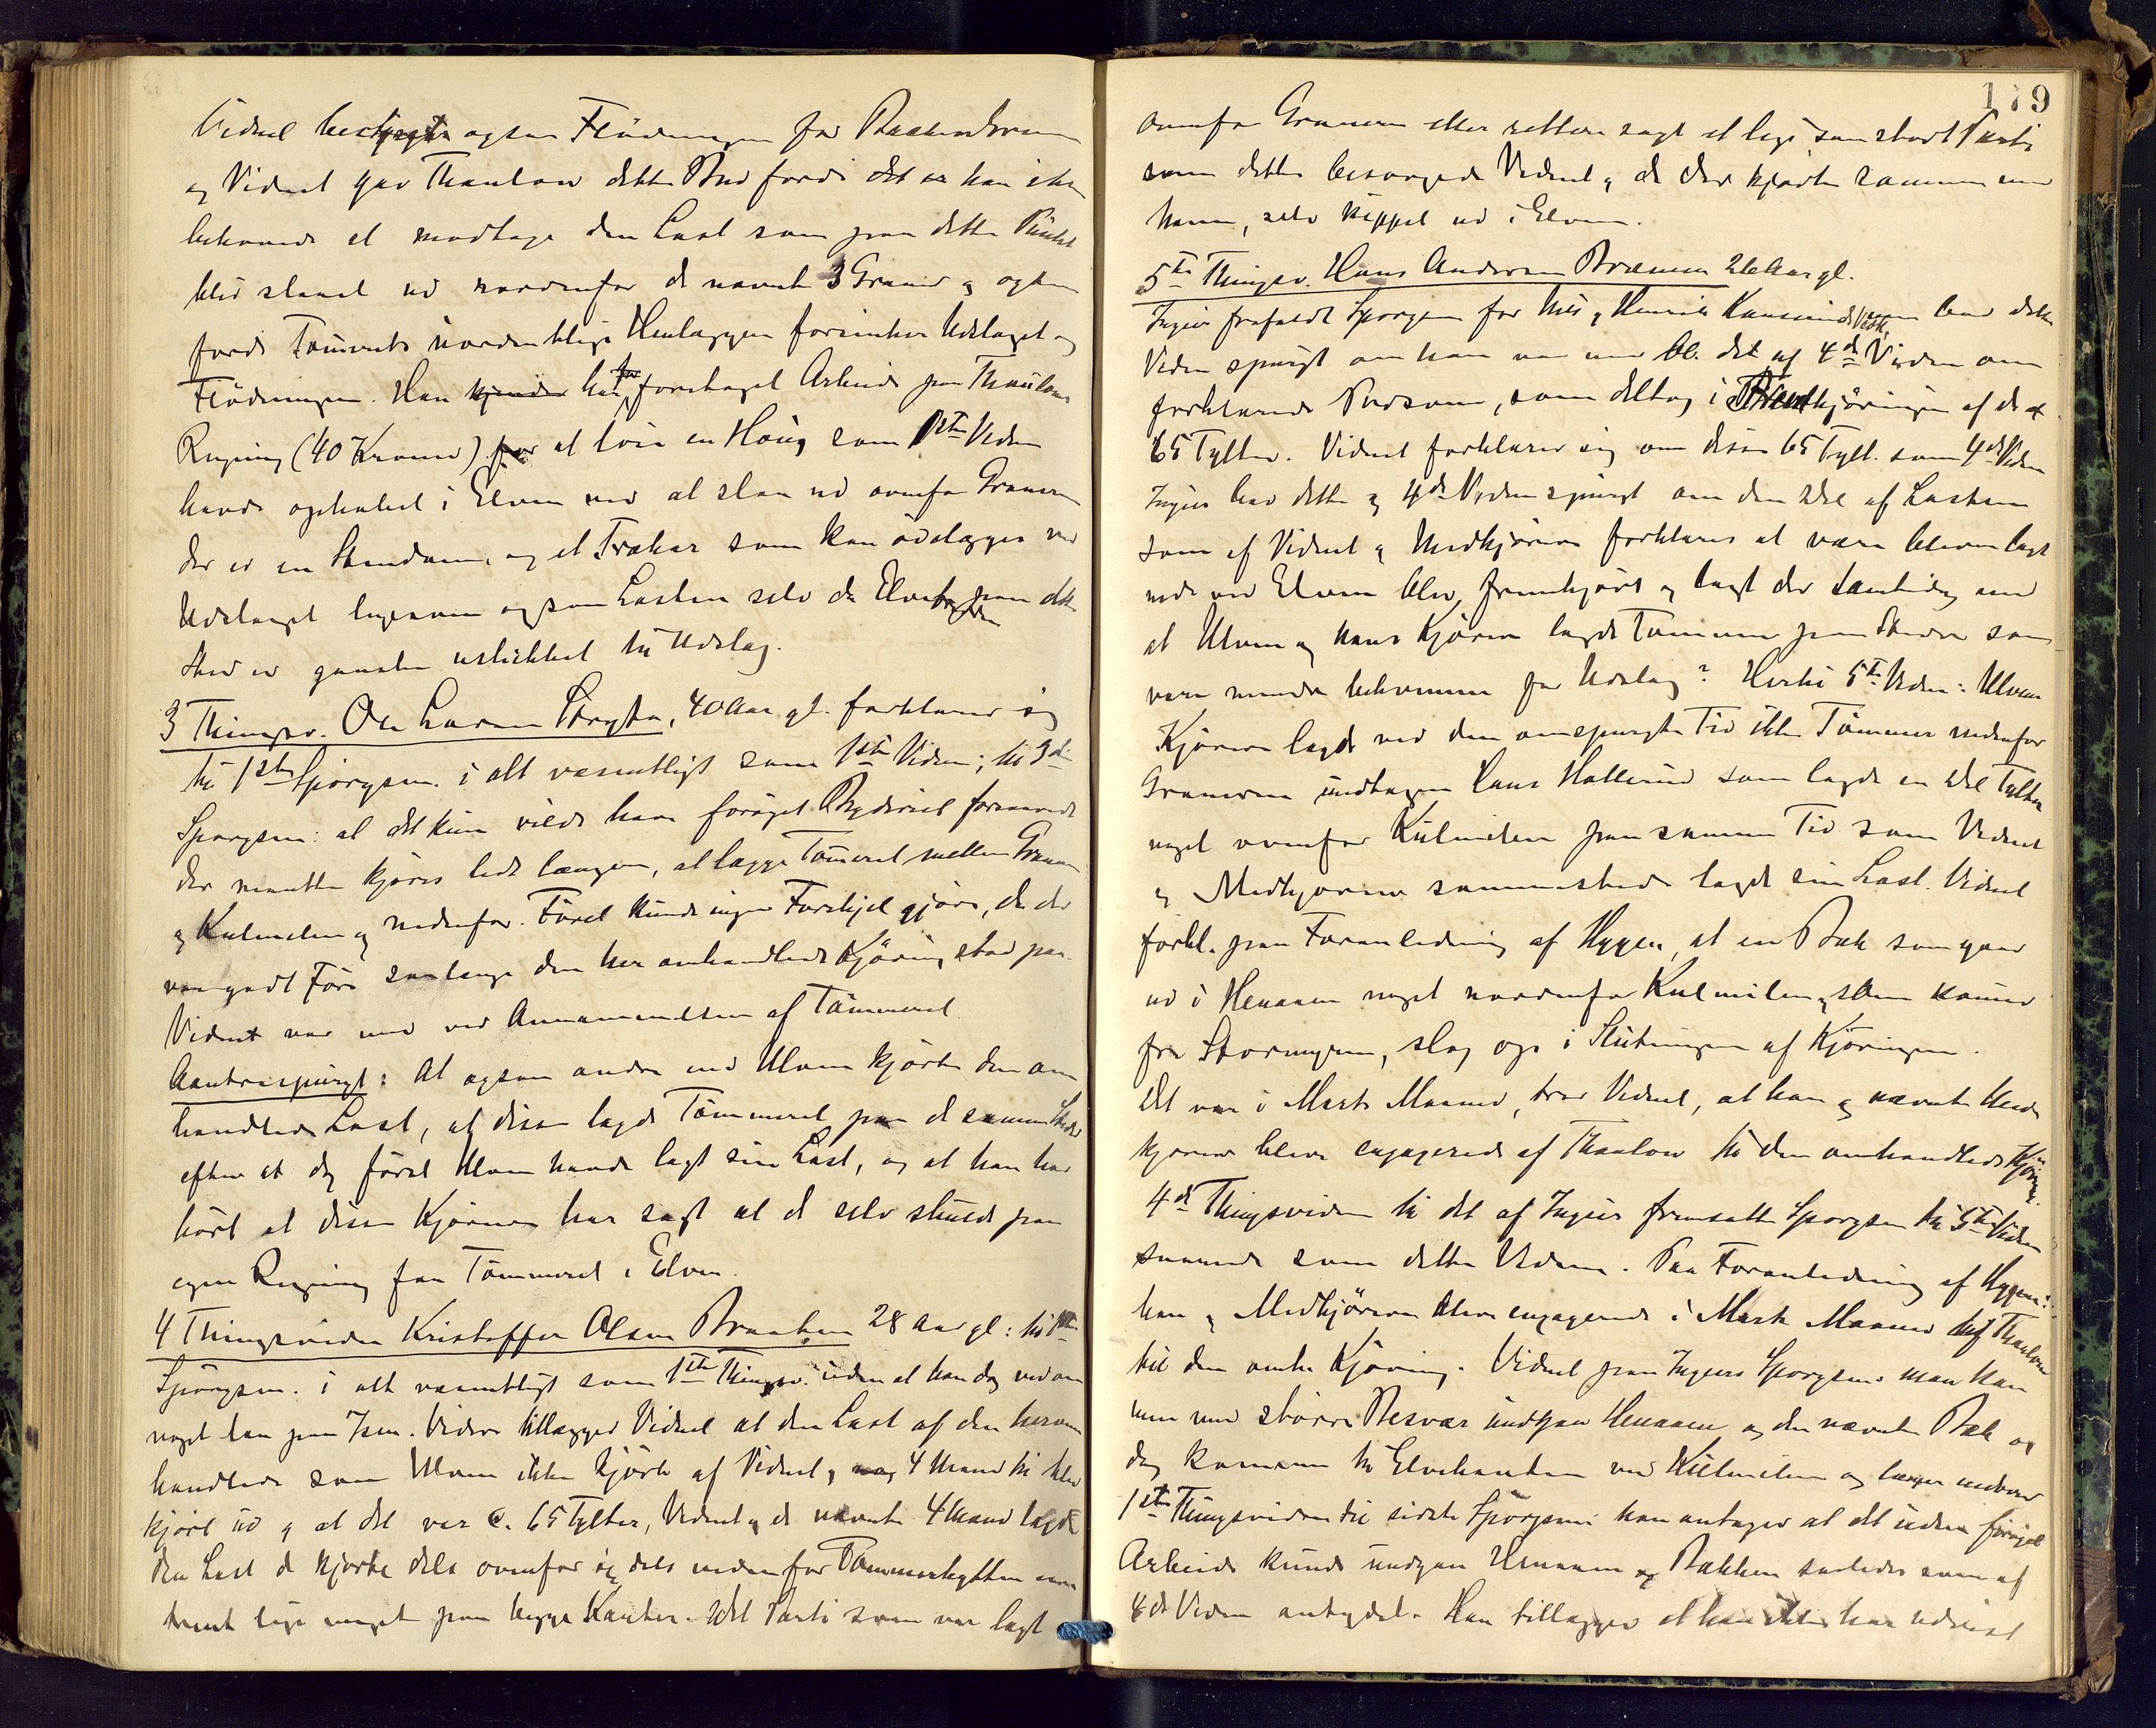 Vidnet bestyrte ogsaa Flödningen for
og Vidnet gav Thaulow dette Bud fordi det er han ikke
behøvede at modtage den Last som paa dette Punkt
blev slaaet ud nordenfor de nævnte 3 Graner og ogsaa
fordi Tömmerets uordentlige Henlæggen forsinker Udslaget og
Flödningen. Han kjender har for foretaget Arbeide paa Thaulows
Regning (40 Kroner) for at löse en Houg som 1ste Vidne
havde ophobet i Elven ved at slaa ud ovenfor Graneren
der er en Stendam, og et Trækar som kan ödelægges ved
Udslaget ligesom ogsaa Lasten selv da Elvebredden paa dette
Sted er ganske uskikket til Udslag.
3 Thingsv. Ole Larsen Stryken, 40 Aar gl. forklarer sig
til 1ste Spörgsm. i alt væsentligt som 1ste Vidne; til 3die
Spørgsm: at det kun vilde have foröget Byderiet forsaavidt
der maatte kjöres lidt længer, at lægge Tömmeret mellem Granen
og Kulmilen og nedenfor. Föret kunde ingen Forskjel gjöre, da der
var godt Före saalænge den her omhandlede Kjöring stod paa.
Vidnet var med ved Annammelsen af Tömmeret.
Contraspurgt: At ogsaa andre end Ulven kjörte den om
handlede Last, at disse lagde Tömmeret paa de samme Steder
efter at dog först Ulven havde lagt sin Last, og at han har
hört at disse Kjörere har sagt at de selv skulde paa
egen Regning faa Tömmeret i Elven.
4 Thingsvidne Kristoffer Olsen Braaten 28 Aar gl: til 1ste
Spörgsm. i alt væsentligt som 1ste Thingsv. uden at han dog ved om
noget laa paa Isen. Videre tillægger Vidnet at den Last af den herom
handlede som Ulven ikke kjörte af Vidnet og 4 Mand til blev
kjört ud og at det var c. 65 Tylter, Vidnet og de nævnte 4 Mand lagde
den Last de kjørte dels ovenfor og dels nedenfor Tömmerhytten om
trent lige meget paa begge Kanter. Det Parti som var lagt
179
ovenfor Graneren eller rettere sagt et lige saa stort Parti
som dette besørgede Vidnet og de der kjørte sammen med
ham, selv kippet ud i Elven.
5te Thingsv. Hans Andersen Bræmen 26 Aar gl.
Ingier frafaldt Spørgsm for Nils og Henrik
Viden spurgt om han var med bl. det af 4de Viden om
forklarede Personer, som deltog i Fremkjøringen af de
65 Tylter. Vidnet forklarer sig om disse 65 Tylt. som 4de Viden
Ingier bad dette og 4de Viden spurgt om den Del af Lasten
som af Vidnet og Medkjörere forklares at være bleven lagt
nede ved Elven blev fremkjört og lagt der samtidig med
at Ulven og hans Kjörere lagde Tömmer paa Steder som
vare mindre bekvemme for Udslag? Hertil 5te Viden: Ulvens
Kjörere lagde ved den omspurgte Tid ikke Tömmer nedenfor
Graneren undtagen Hans Hallerud som lagde en Del Tylter
noget ovenfor Kulmilen paa samme Tid som Vidnet
og Medkjørere sammesteds lagde sin Last. Vidnet
forkl. paa Foranledning af Hygen, at en Bæk som gaar
ud i Henaaen noget nordenfor Kulmilen og som kommer
fra Stormyren, slog op i Slutningen af Kjöringen.
Det var i Marts Maaned, tror Vidnet, at han og nævnte Med
kjørere bleve engagerede af Thaulow til den omhandlede Kjöring.
4de Thingsviden til det af Ingier fremsatte Spørgsm til 5te Viden
svarende som dette Viden. Paa Foranledning af Hygen:
han og Medkjörere bleve engagerede i Marts Maaned af Thaulow
til den omhl Kjöring. Vidnet paa Ingiers Spørgsm: man kan
uden större Besvær undgaa Henaaen og den nævnte Bæk og
dog komme til Elvekanten ved Kulmilen og længer nedover
1ste Thingsviden til sidste Spörgsm: han antager at det uden foröget
Arbeide kunde undgaa Henaaen og Bækken saaledes som af
4de Viden antydet. Han tillægger at han ikke har udvist